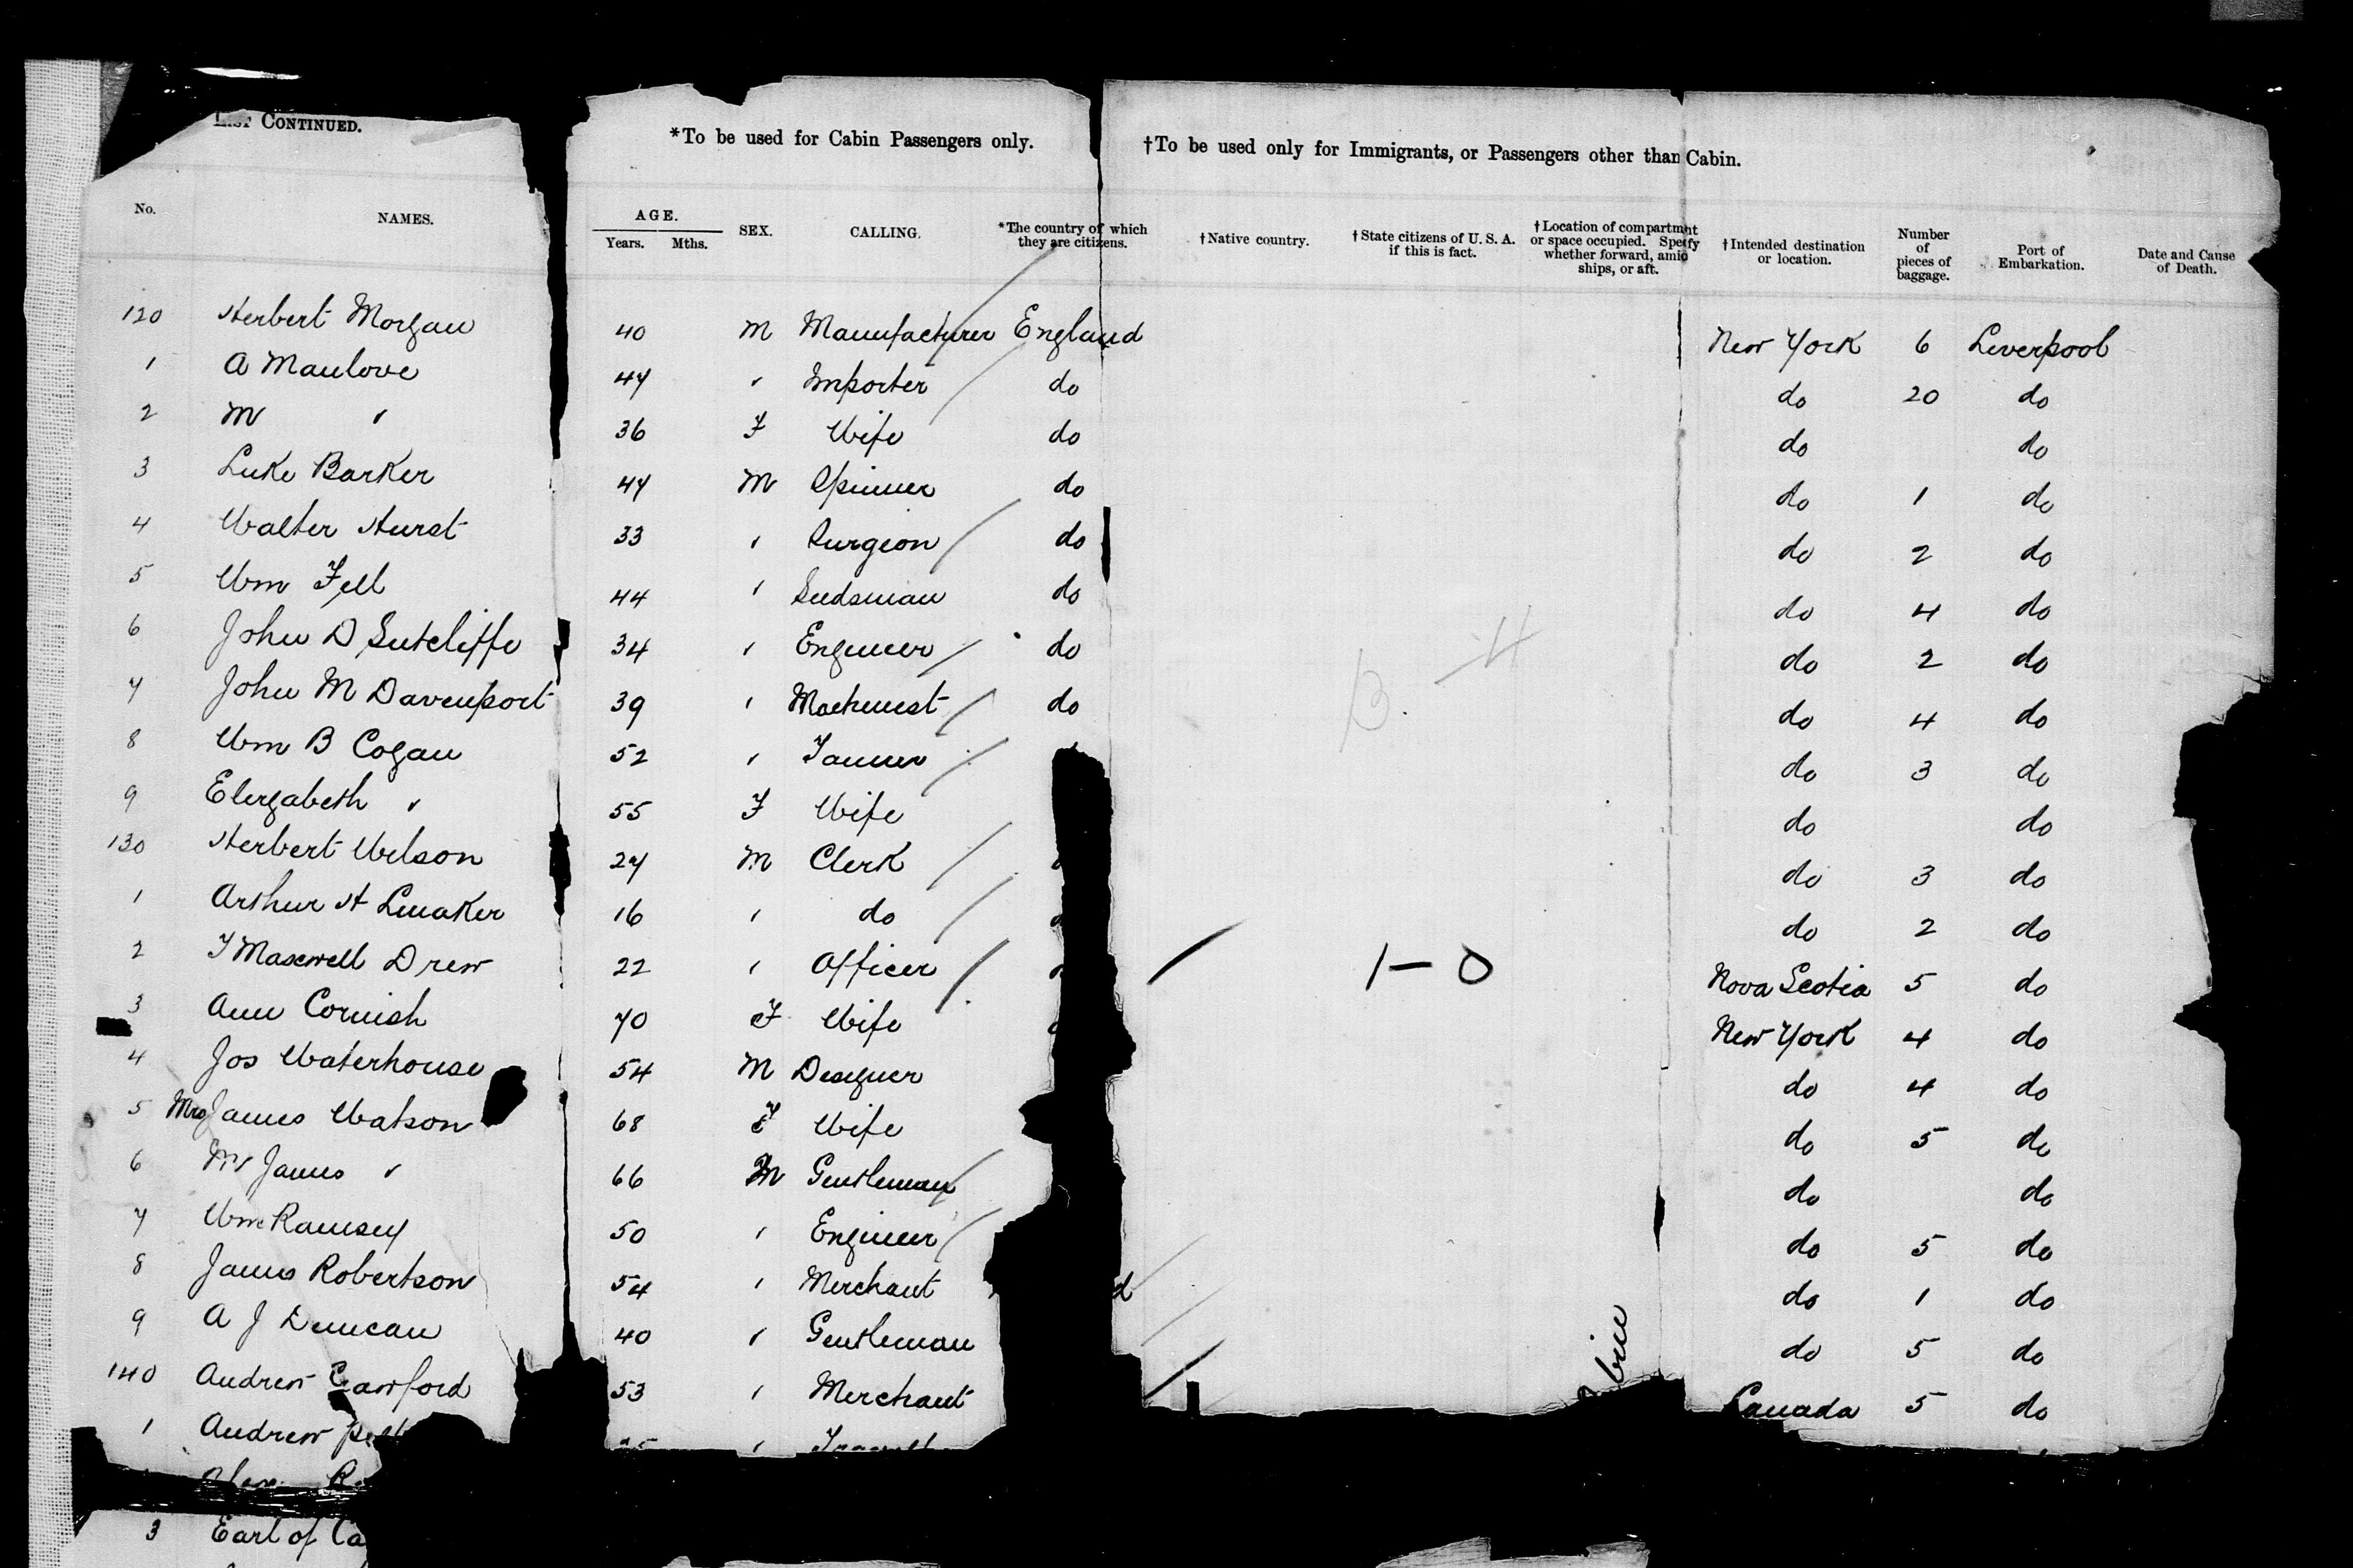 List Continued.
*To be used for Cabin Passengers only.
†To be used only for Immigrants, or Passengers other than Cabin.
No. NAMES. AGE. Years. Mths. SEX. CALLING. *The country of which they are citizens. †Native country. †State citizens of U. S. A. if this is fact. †Location of compartmnt or space occupied. Specify whether forward, amid ships, or aft. †Intended destination or location. Number of pieces of baggage. Port of Embarkation. Date and Cause of Death.
120 Herbert Morgan 40 M Manufacturer England New York 6 Liverpool
1 A Manlove 47 " Importer do do 20 do
2 M " 36 F Wife do do do
3 Luke Barker 47 M Spinner do do 1 do
4 Walter Hurst 33 " Surgeon do do 2 do
5 Wm Fell 44 " Seedsman do do 4 do
6 John D Sutcliffe 34 " Engineer do do 2 do
7 John M Davenport 39 " Machinist do do 4 do
8 Wm B Cogan 52 " Tanner do 3 do
9 Elizabeth " 55 F Wife do do
130 Herbert Wilson 27 M Clerk do 3 do
1 Arthur H Linaker 16 " do do 2 do
2 Maxwell Drew 22 " Officer 1-0 Nova Scotia 5 do
3 Ann Cornish 70 F Wife New York 4 do
4 Jos Waterhouse 54 M Designer do 4 do
5 Mrs James Watson 68 F Wife do 5 do
6 Mr James " 66 M Gentleman do do
7 Wm Ramsey 50 " Engineer do 5 do
8 James Robertson 54 " Merchant d do 1 do
9 A J Duncan 40 " Gentleman do 5 do
140 Andrew Crawford 53 " Merchant Canada 5 do
1 Andrew
3 Earl of Ca